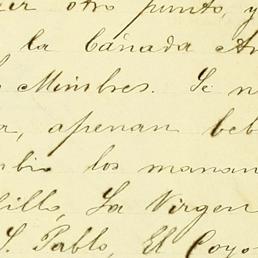 er otro punto, y
la Cañada An
Mimbres. Se n
a, apenan beb
mbio los manan
illo, La Virgen
S. Pablo, El Coyo